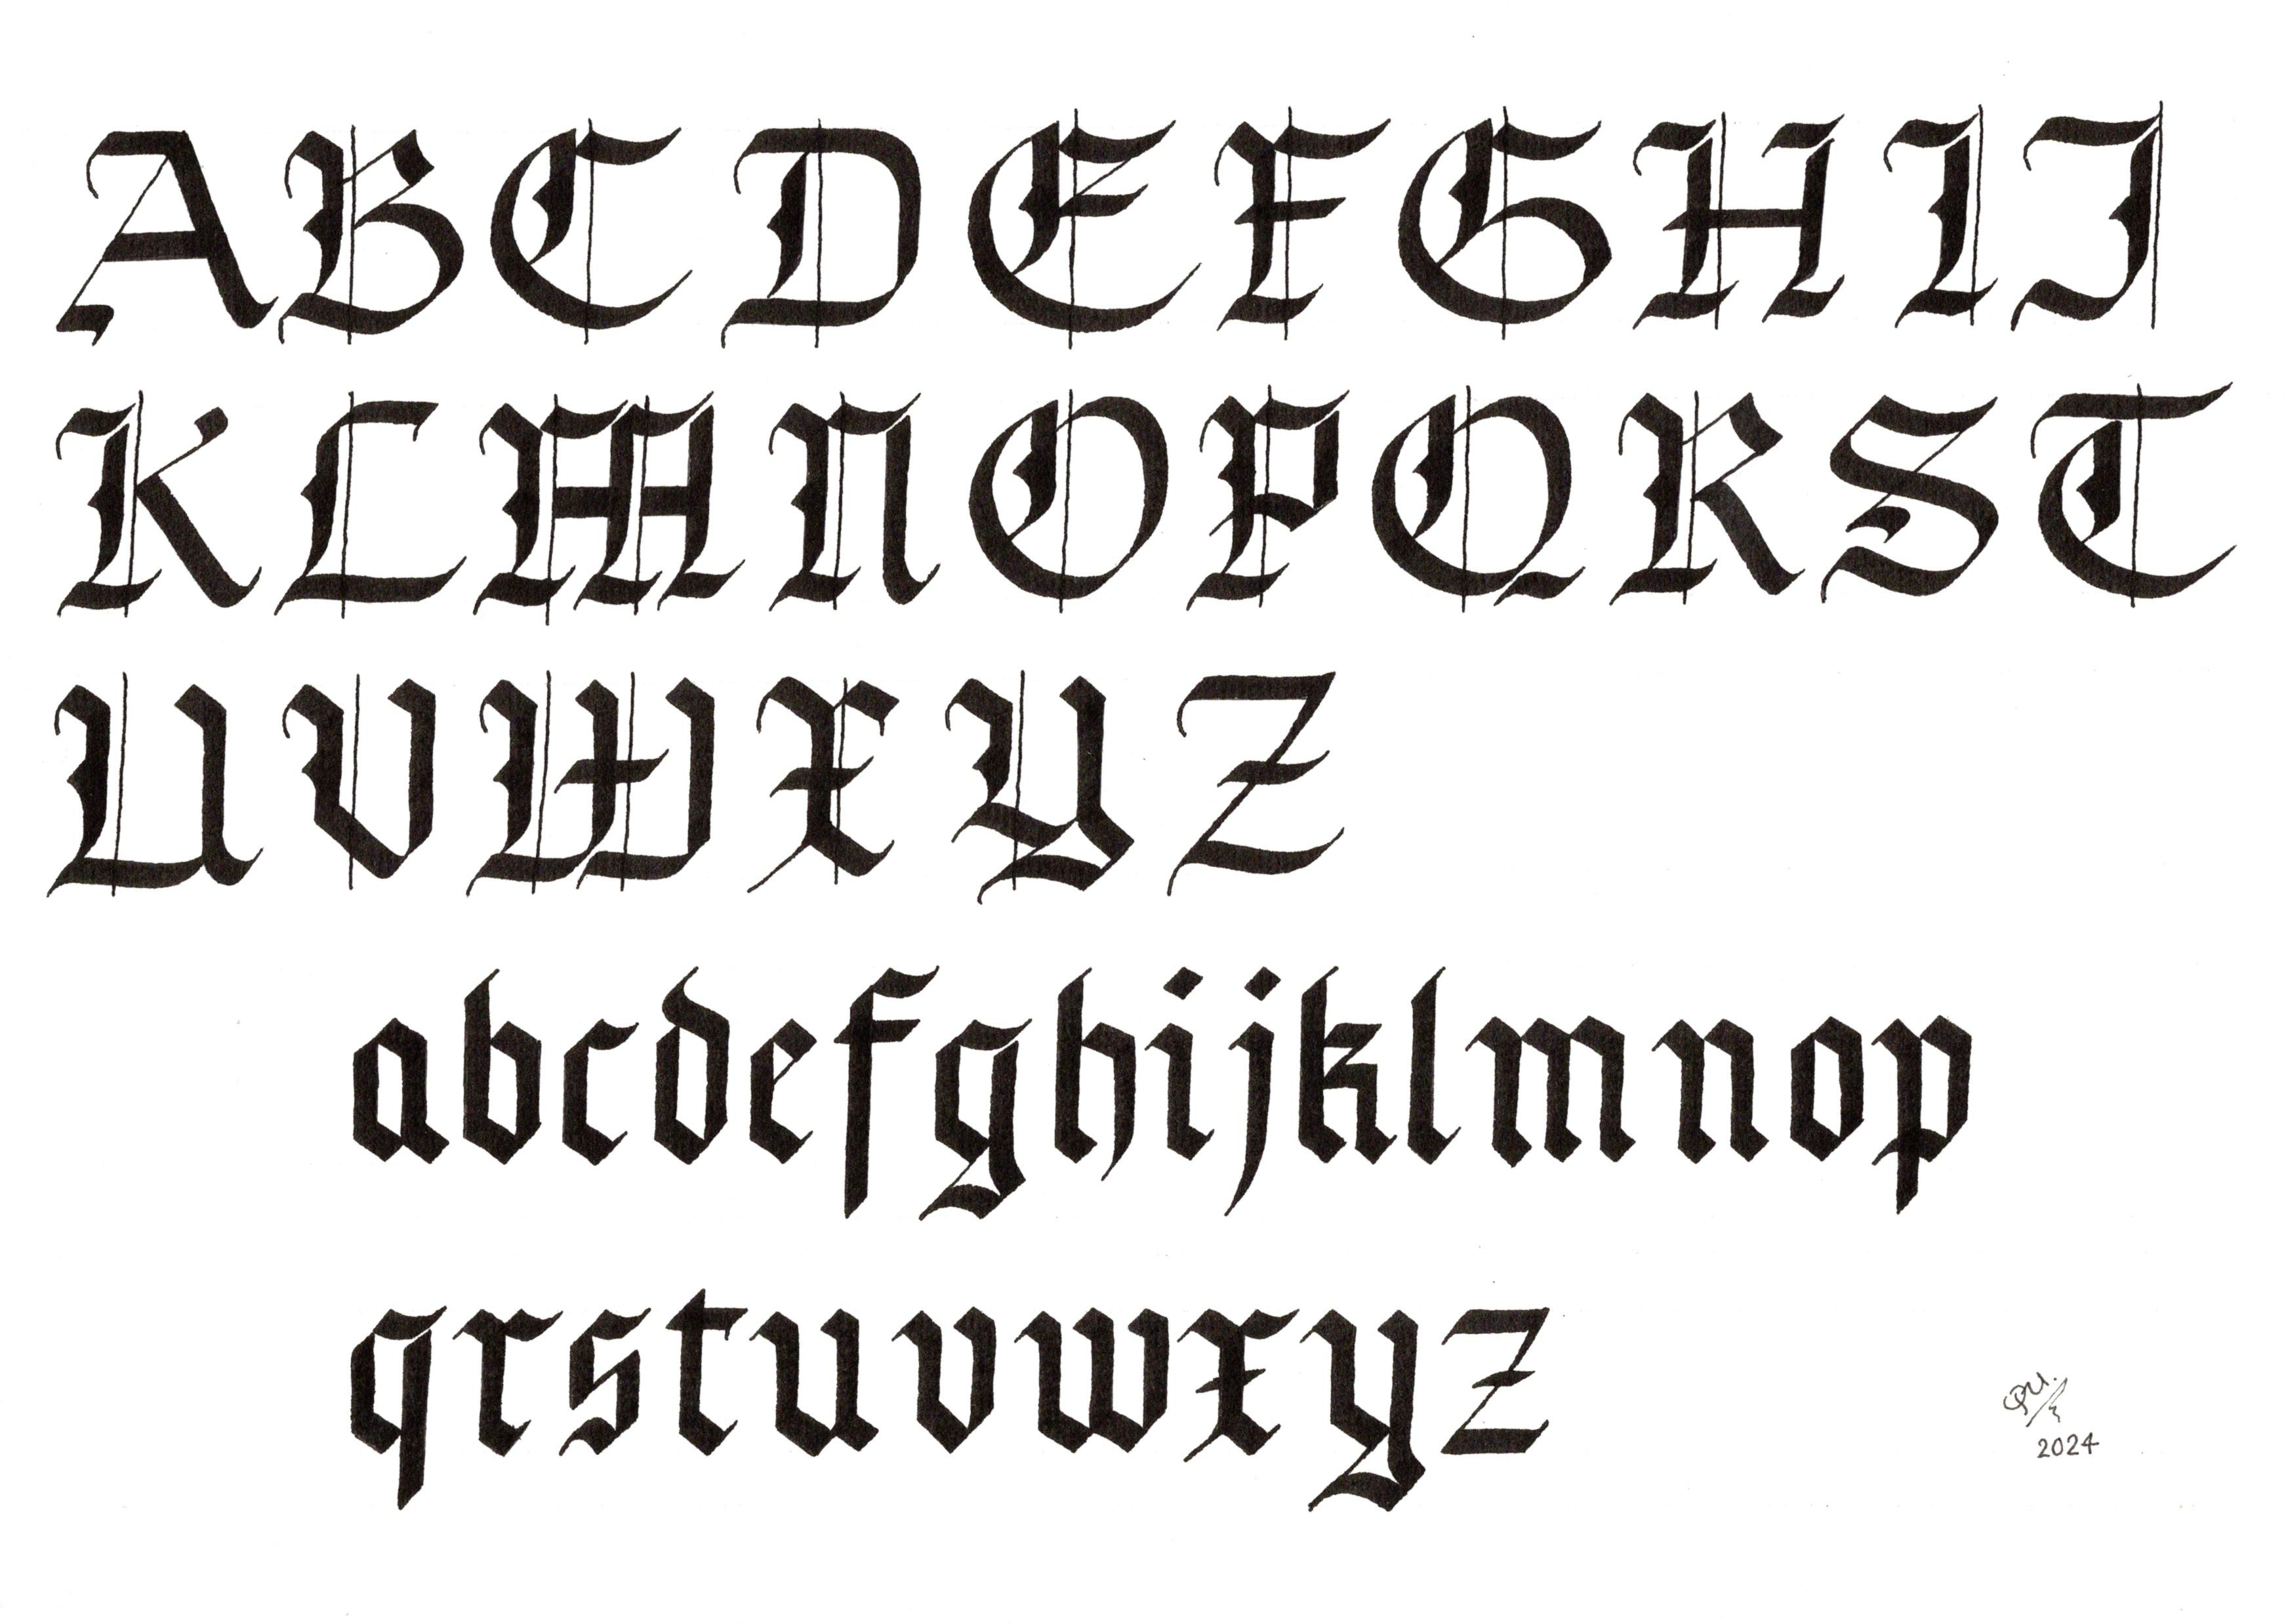 ABCDEFGHIJ
KLMNOPQRST
UVWXYZ
abcdefghijklmnop
qrstuvwxyz
2024